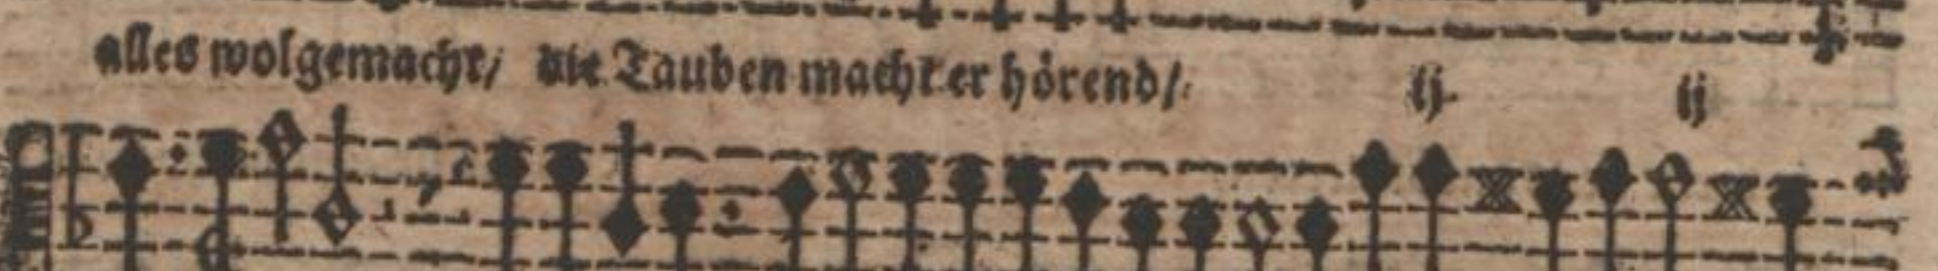 alles wolgemacht/ die Tauben macht er hörend/ ij. ij